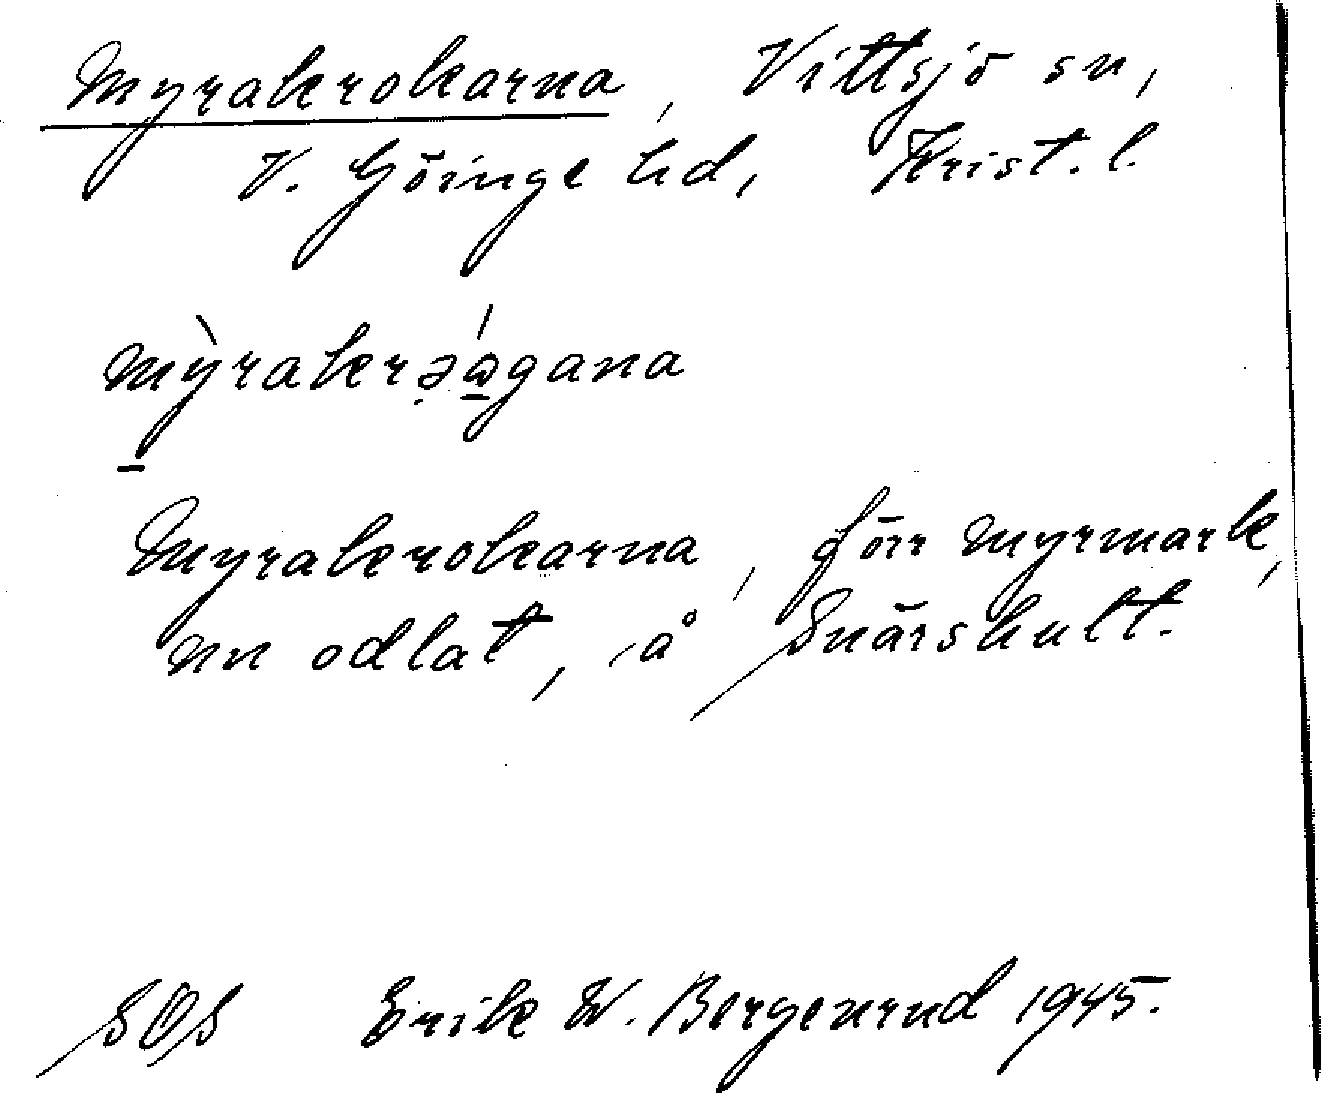 Myrakrokarna, Vittsjö sn,
V. Göinge hd, Krist. l.
mỳrakrəá̱gana
Myrakrokarna, förr myrmark,
nu odlat, å Snärshult.
SOS Erik W. Bergenrud 1945.